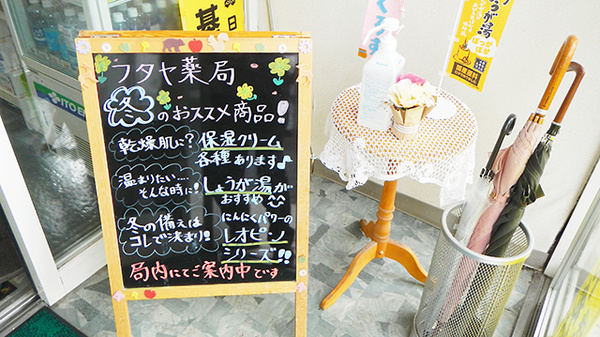 フタヤ薬局
冬のおススメ商品!
乾燥肌に?
保湿クリーム
各種あります♪
温まりたい....
そんな時に!
しょうが湯が
おすすめ
冬の備えは
コレで決まり!!
にんにくパワーの
レオピン
シリーズ!!
局内にてご案内中です
ITO EN
基
日
うが湯